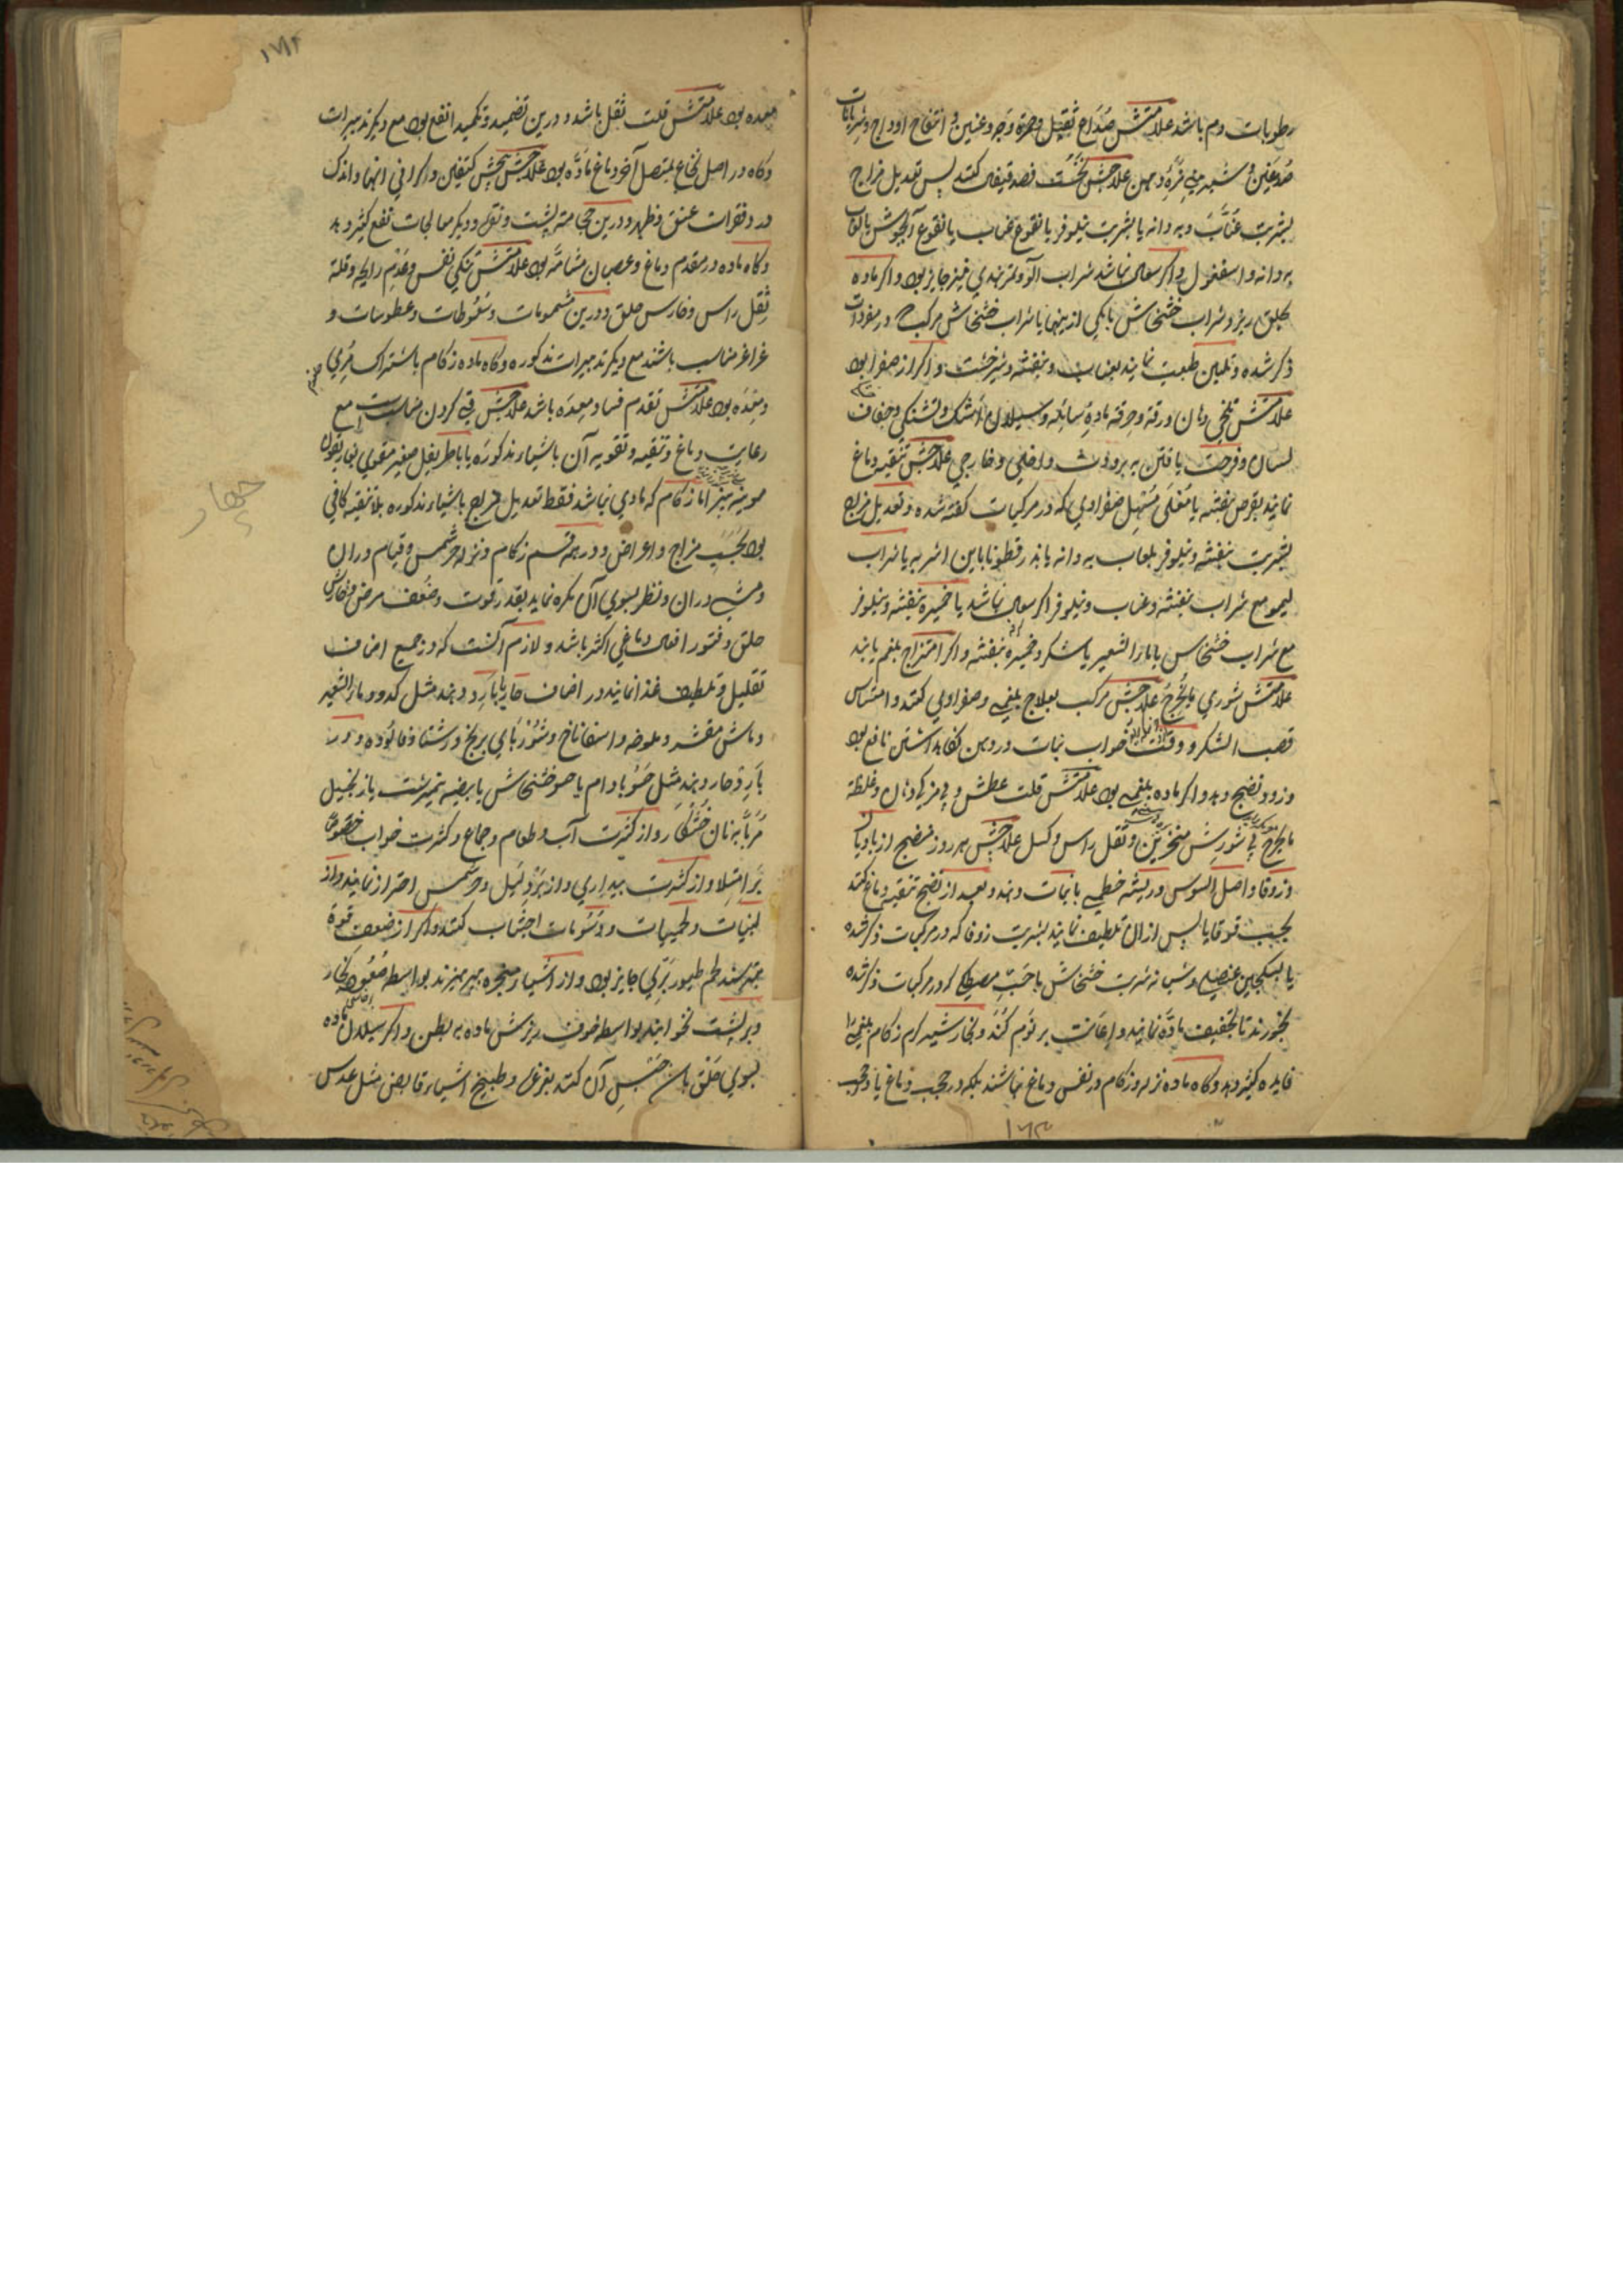 رطوبات دم باشد علامتش صُدَاع ثقیل و حمرة وجه و عینین و انتفاخ اوداج و شریانات
صُدغین و شیرینی مزهٔ دهن علاجش نخست فصد قیفال کنند پس تعدیل مزاج
بشربت عنّاب و بهدانه یا بشربت نیلوفر یا نقوع عناب یا نقوع آلوجوش یا لعاب
بهدانه و اسفغول و اگر سعال نباشد شراب آلو و تمرهندی نیز جایز بود و اگر ماده
بحلق ریزد شراب خشخاش یا یکی ازینها یا شراب خشخاش مرکب که در مفردات
ذکر شده و تلیین طبیعت نمایند بعناب و بنفشه و شیرخشت و اگر از صفرا بود
علامتش تلخی دهان و رقة و حرقة مادهٔ سائله و سیلان اشک و تشنگی و جفاف
لسان و فرحت یافتن به برودت داخلی و خارجی علاجش تنقیه دماغ
نمایند بقرص بنفشه یا مغلی مُسهل صفراوی که در مرکبات گفته شده و تعدیل مزاج
بشربت بنفشه و نیلوفر بلعاب بهدانه یا بذرقطونا باین اشربه یا شراب
لیمو مع شراب بنفشه و عناب و نیلوفر اگر سعال نباشد یا خمیره بنفشه و نیلوفر
مع شراب خشخاس یا ماءالشعیر با شکر و خمیره بنفشه و اگر امتزاج بلغم یابند
علامتش شوری مایُخرج علاجش مرکب بعلاج بلغمی و صفراوی کنند و امتصاس
قصب السکر و وقت خواب نبات در دهن نگاهداشتن نافع بود
و زود نضج دهد و اگر ماده بلغمی بود علامتش قلت عطش و بیمزگی دهان و غلظة
مایخرج بی شورش منخرین و ثقل راس و کسل علاجش هر روز منضج از بادیان
و زوفا و اصل السوس و ریشه خطمی با نبات دهند و بعد از نضج تنقیه دماغ کنند
بحب قوقایا پس ازان تلطیف نمایند بشربت زوفا که در مرکبات ذکر شده
یا بسکنجبین عنصلی و شبانه شربت خشخاش با حَبّ مصطکی که در مرکبات ذکر شده
بخورند تا تجفیف ماده نماید و اعانت بر نوم کند و بخار شیر گرم زکام بلغمی را
فایده کثیر دهد و گاه ماده نزله و زکام در نفس دماغ نباشد بلکه در حجب دماغ یا در حجب
۱۶۳
۱۷۲
معده بود علامتش قلت ثقل باشد و درین تضمید و تکمید انفع بود مع دیگر تدبیرات
و گاه در اصل نخاع بمتصل آخر دماغ مادّه بود علاجش پخش کتفین و گرانی انها و اندک
در فقرات عنق و ظهر و درین حجامة پشت و نقره و دیگر معالجات نفع کثیر دهد
و گاه ماده در مقدم دماغ و عصبان مشامّه بود علامتش تنگی نفس و عدم رایحه و قلة
ثقل راس و خارش حلق و درین مشمومات و سعوطات و عطوسات و
غراغر مناسب باشند مع دیگر تدبیرات مذکوره و گاه ماده زکام باشتراک مری
و معده بود علامتش تقدم فساد معده باشد علاجش قی کردن مناسب است مع
رعایت دماغ و تنقیه و تقویه آن باشیاء مذکوره یا باطریفل صغیر مقوی
مویز نیز اما زکام که مادی نباشد فقط تعدیل مزاج باشیاء مذکوره بلا تنقیه کافی
بود بحسب مزاج و اعراض و در همه قسم زکام و نزله حر شمس و قیام دران
و مشی دران و نظر بسوی آن مکره نماید بقدر قوت و ضعف مرض و خارش
حلق و فتور افعال دماغی اکثر باشد و لازم آنست که در جمیع اضاف
تقلیل و تلطیف غذا نمایند در اضاف حار بابارد دهند مثل کدو و ماءالشعیر
و ماش مقشر و ملوخه و اسفاناخ و شوربای برنج و رشتا و فالوده و در
بارد حار دهند مثل حَسُو بادام یا حسو خشخاش یا بیضه نیمبرشت یا زنجبیل
مُرَبّا به نان خُشکار و از کثرت آب و طعام و جماع و کثرت خواب خصوصاً
بر امتلا و از کثرت بیداری و از برد لیل و حر شمس احتراز نمایند و از
لبنیات و لحمیات و دَسُومات اجتناب کنند و اگر از ضعف قوة
بترسند لحم طیور برّی جایز بود و از اشیاء مبخره بپرهیزند بواسطه صُعُود بخار
و بر پشت نخوابند بواسطه خوف ریزش ماده به بطن و اگر سیلان ماده
بسوی حَلق باشد حَبس آن کنند بغرغره و طبیخ اشیاء قابض مثل عدس
چهار